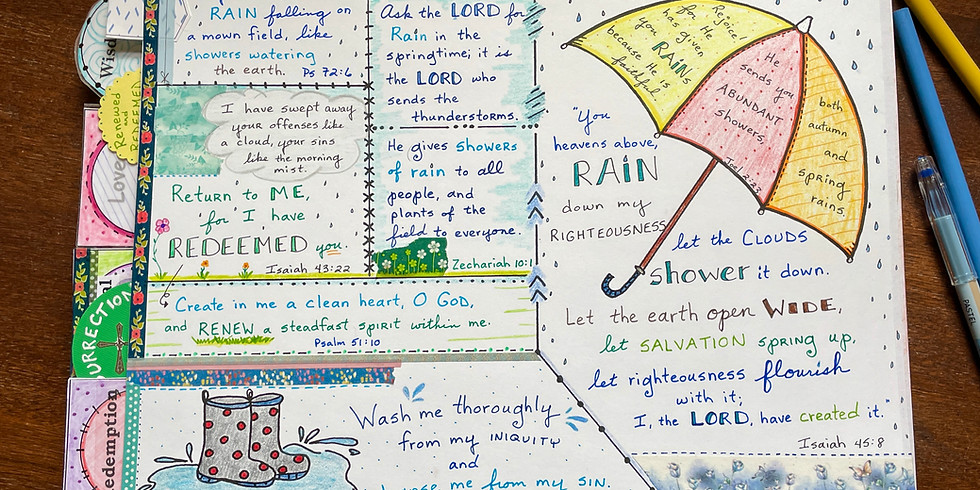 RAIN falling on
a mown field, like
showers watering
the earth. Ps 72:6
I have swept away
your offenses like
a cloud, your sins
like the morning
mist.
Return to ME,
for I have
REDEEMED you.
Isaiah 43:22
Ask the LORD for
Rain in the
springtime; it is
the LORD who
sends the
thunderstorms.
He gives showers
of rain to all
people, and
plants of the
field to everyone.
Zechariah 10:1
Create in me a clean heart, O GOD,
and RENEW a steadfast spirit within me.
Psalm 51:10
Wash me thoroughly
from my INIQUITY
and
me from my SIN.
Rejoice!
for He
has given
you RAINS
because He is
faithful
He
sends you
ABUNDANT
showers,
both
autumn
and
spring
rains.
"You
heavens above,
RAIN
down my
RIGHTEOUSNESS
let the CLOUDS
shower it down.
Let the earth open WIDE,
let SALVATION spring up,
let righteousness flourish
with it;
I, the LORD, have created it."
Isaiah 45:8
Wisd
Renewed
and
REDEEMED
Love
URRECTION
edemption
PASTEL